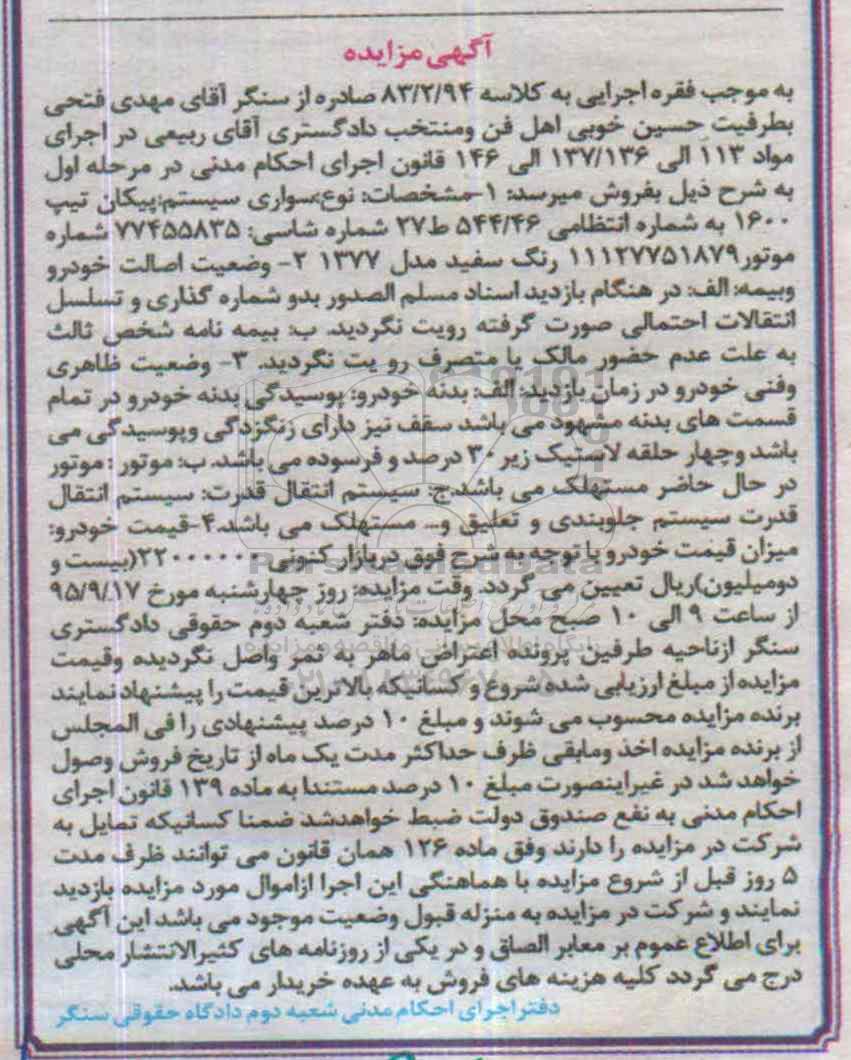 آگهی مزایده
به موجب فقره اجرایی به کلاسه ۸۳/۲/۹۴ صادره از سنگر آقای مهدی فتحی
بطرفیت حسین خوبی اهل فن ومنتخب دادگستری آقای ربیعی در اجرای
مواد ۱۱۳ الی ۱۳۷/۱۳۶ الی ۱۴۶ قانون اجرای احکام مدنی در مرحله اول
به شرح ذیل بفروش میرسد: ۱-مشخصات: نوع:سواری سیستم:پیکان تیپ
۱۶۰۰ به شماره انتظامی ۵۴۴/۴۶ ط۲۷ شماره شاسی: ۷۷۴۵۵۸۳۵ شماره
موتور۱۱۱۲۷۷۵۱۸۷۹ رنگ سفید مدل ۱۳۷۷ ۲- وضعیت اصالت خودرو
وبیمه: الف: در هنگام بازدید اسناد مسلم الصدور بدو شماره گذاری و تسلسل
انتقالات احتمالی صورت گرفته رویت نگردید. ب: بیمه نامه شخص ثالث
به علت عدم حضور مالک یا متصرف رو یت نگردید. ۳- وضعیت ظاهری
وفنی خودرو در زمان بازدید: الف: بدنه خودرو: پوسیدگی بدنه خودرو در تمام
قسمت های بدنه مشهود می باشد سقف نیز دارای زنگزدگی وپوسیدگی می
باشد وچهار حلقه لاستیک زیر ۳۰ درصد و فرسوده می باشد. ب: موتور : موتور
در حال حاضر مستهلک می باشد.ج: سیستم انتقال قدرت: سیستم انتقال
قدرت سیستم جلوبندی و تعلیق و... مستهلک می باشد.۴-قیمت خودرو:
میزان قیمت خودرو با توجه به شرح فوق دربازار کنونی ۲۲۰۰۰۰۰۰(بیست و
دومیلیون)ریال تعیین می گردد. وقت مزایده: روز چهارشنبه مورخ ۹۵/۹/۱۷
از ساعت ۹ الی ۱۰ صبح محل مزایده: دفتر شعبه دوم حقوقی دادگستری
سنگر ازناحیه طرفین پرونده اعتراض ماهر به ثمر واصل نگردیده وقیمت
مزایده از مبلغ ارزیابی شده شروع و کسانیکه بالاترین قیمت را پیشنهاد نمایند
برنده مزایده محسوب می شوند و مبلغ ۱۰ درصد پیشنهادی را فی المجلس
از برنده مزایده اخذ ومابقی ظرف حداکثر مدت یک ماه از تاریخ فروش وصول
خواهد شد در غیراینصورت مبلغ ۱۰ درصد مستندا به ماده ۱۳۹ قانون اجرای
احکام مدنی به نفع صندوق دولت ضبط خواهدشد ضمنا کسانیکه تمایل به
شرکت در مزایده را دارند وفق ماده ۱۲۶ همان قانون می توانند ظرف مدت
۵ روز قبل از شروع مزایده با هماهنگی این اجرا ازاموال مورد مزایده بازدید
نمایند و شرکت در مزایده به منزله قبول وضعیت موجود می باشد این آگهی
برای اطلاع عموم بر معابر الصاق و در یکی از روزنامه های کثیرالانتشار محلی
درج می گردد کلیه هزینه های فروش به عهده خریدار می باشد.
دفتر اجرای احکام مدنی شعبه دوم دادگاه حقوقی سنگر